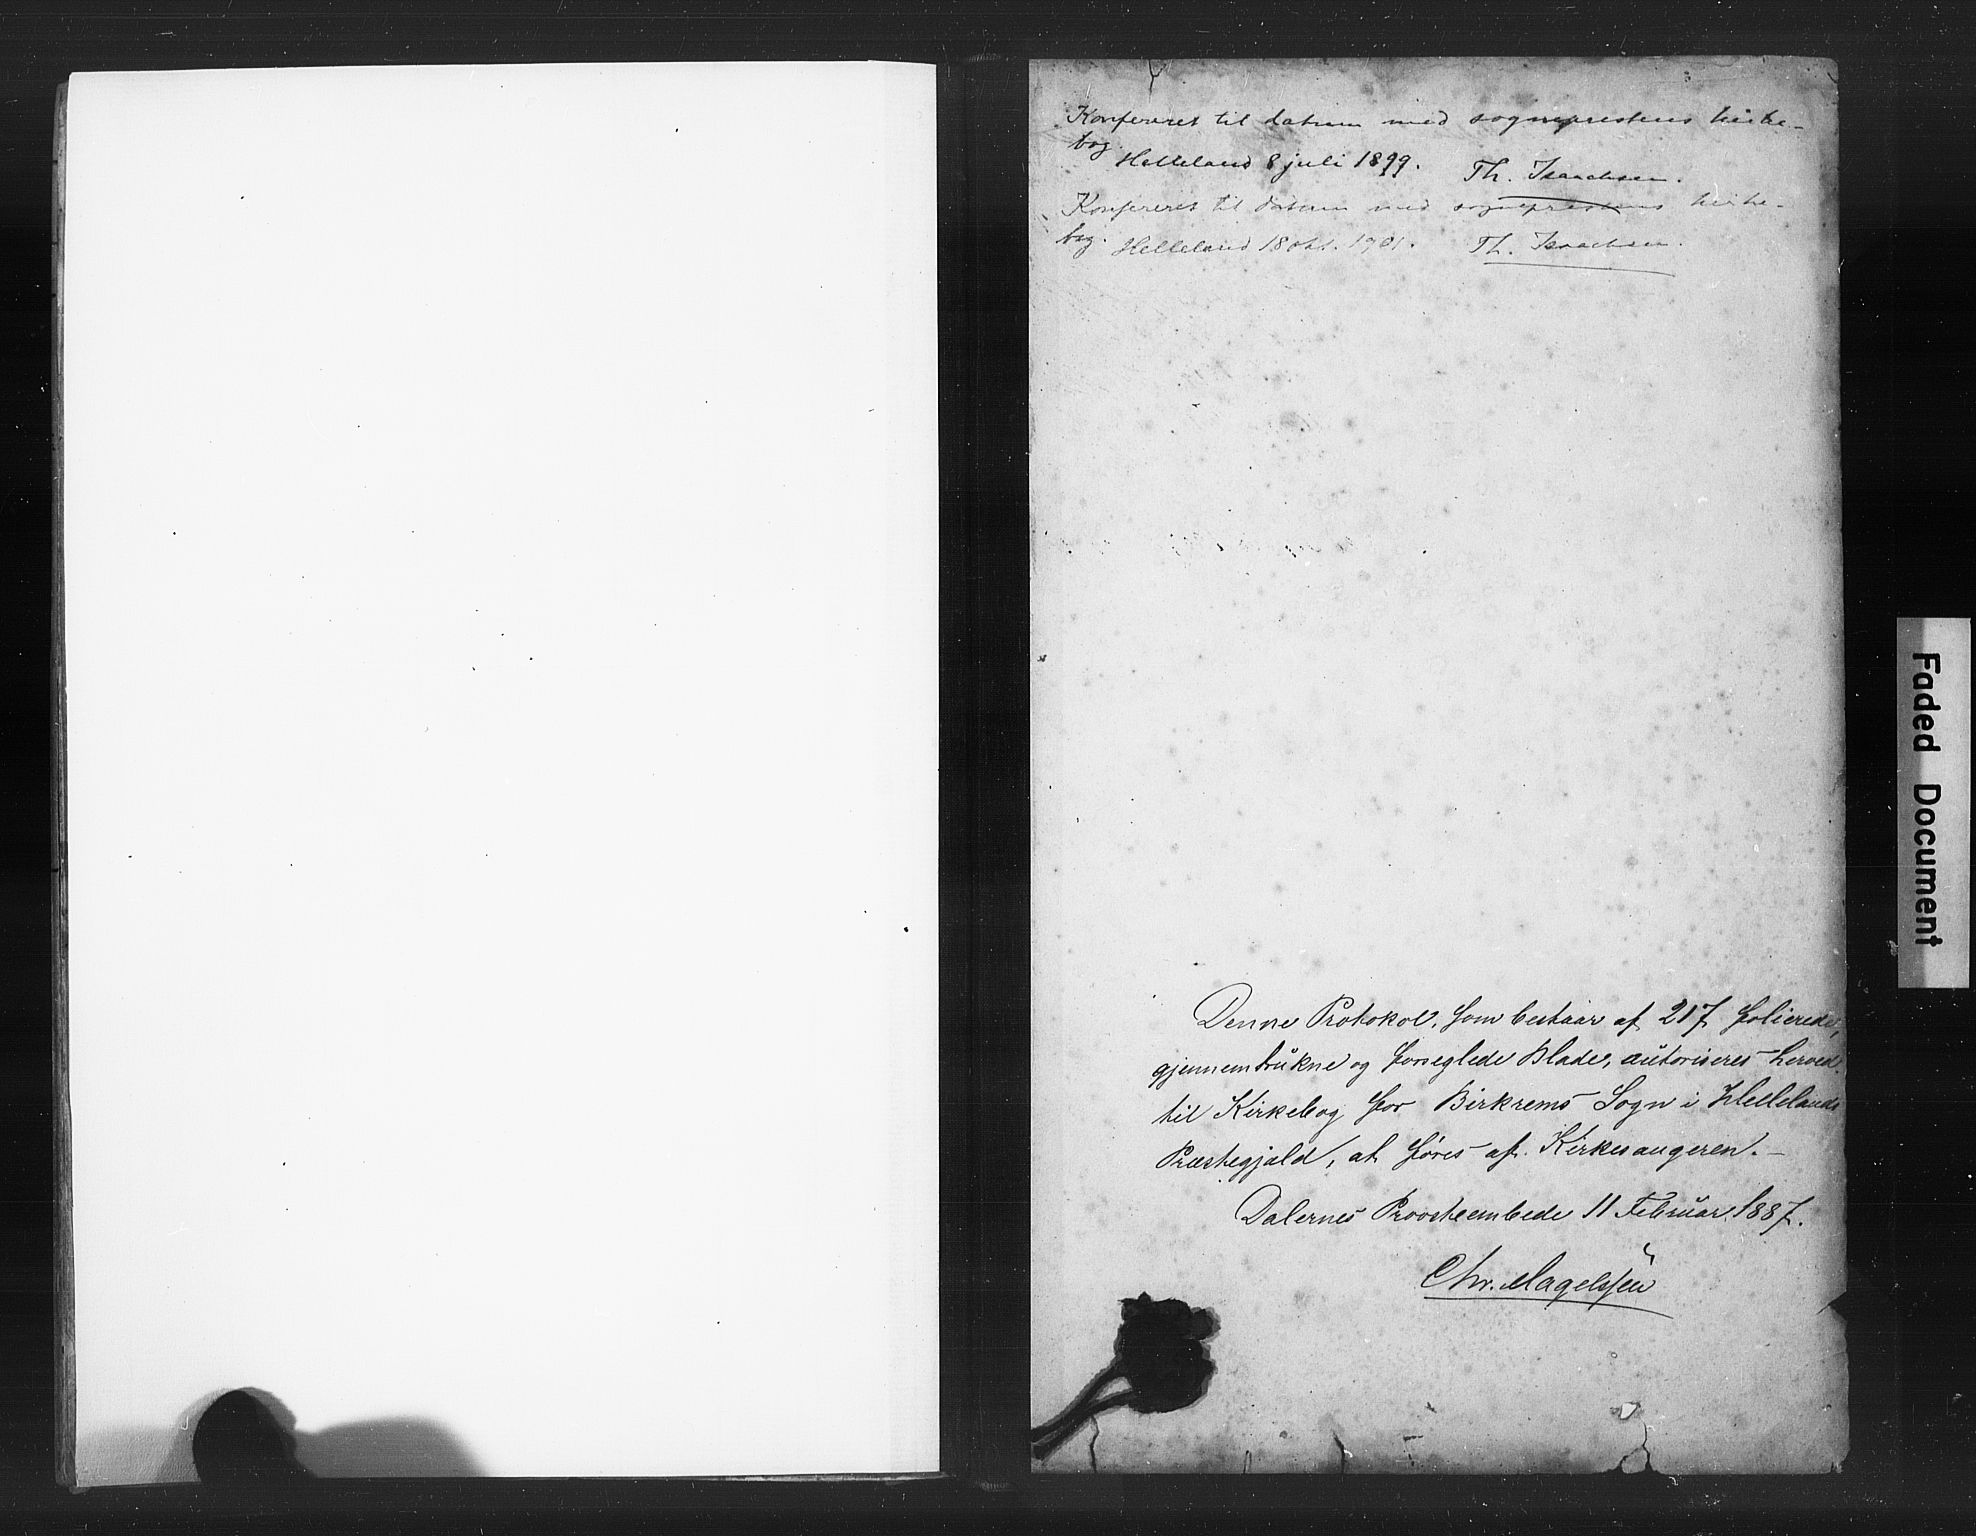 Konfereret til datum med sogneprestens kirke-
bog.
Helleland 8 juli 1899. Th. Isaachsen.
Konfereret til datum med sogneprestens kirke-
bog. Helleland 18 okt. 1901. Th. Isaachsen.
Denne Protokol, som bestaar af 217 folierede,
gjennemtrukne og forseglede Blade, autoriseres herved
til Kirkebog for Birkrems Sogn i Hellelands
Præstegjæld, at føres af Kirkesangeren.—
Dalernes Provsteembede 11 Februar 1887.
Chr. Magelssen
Faded Document